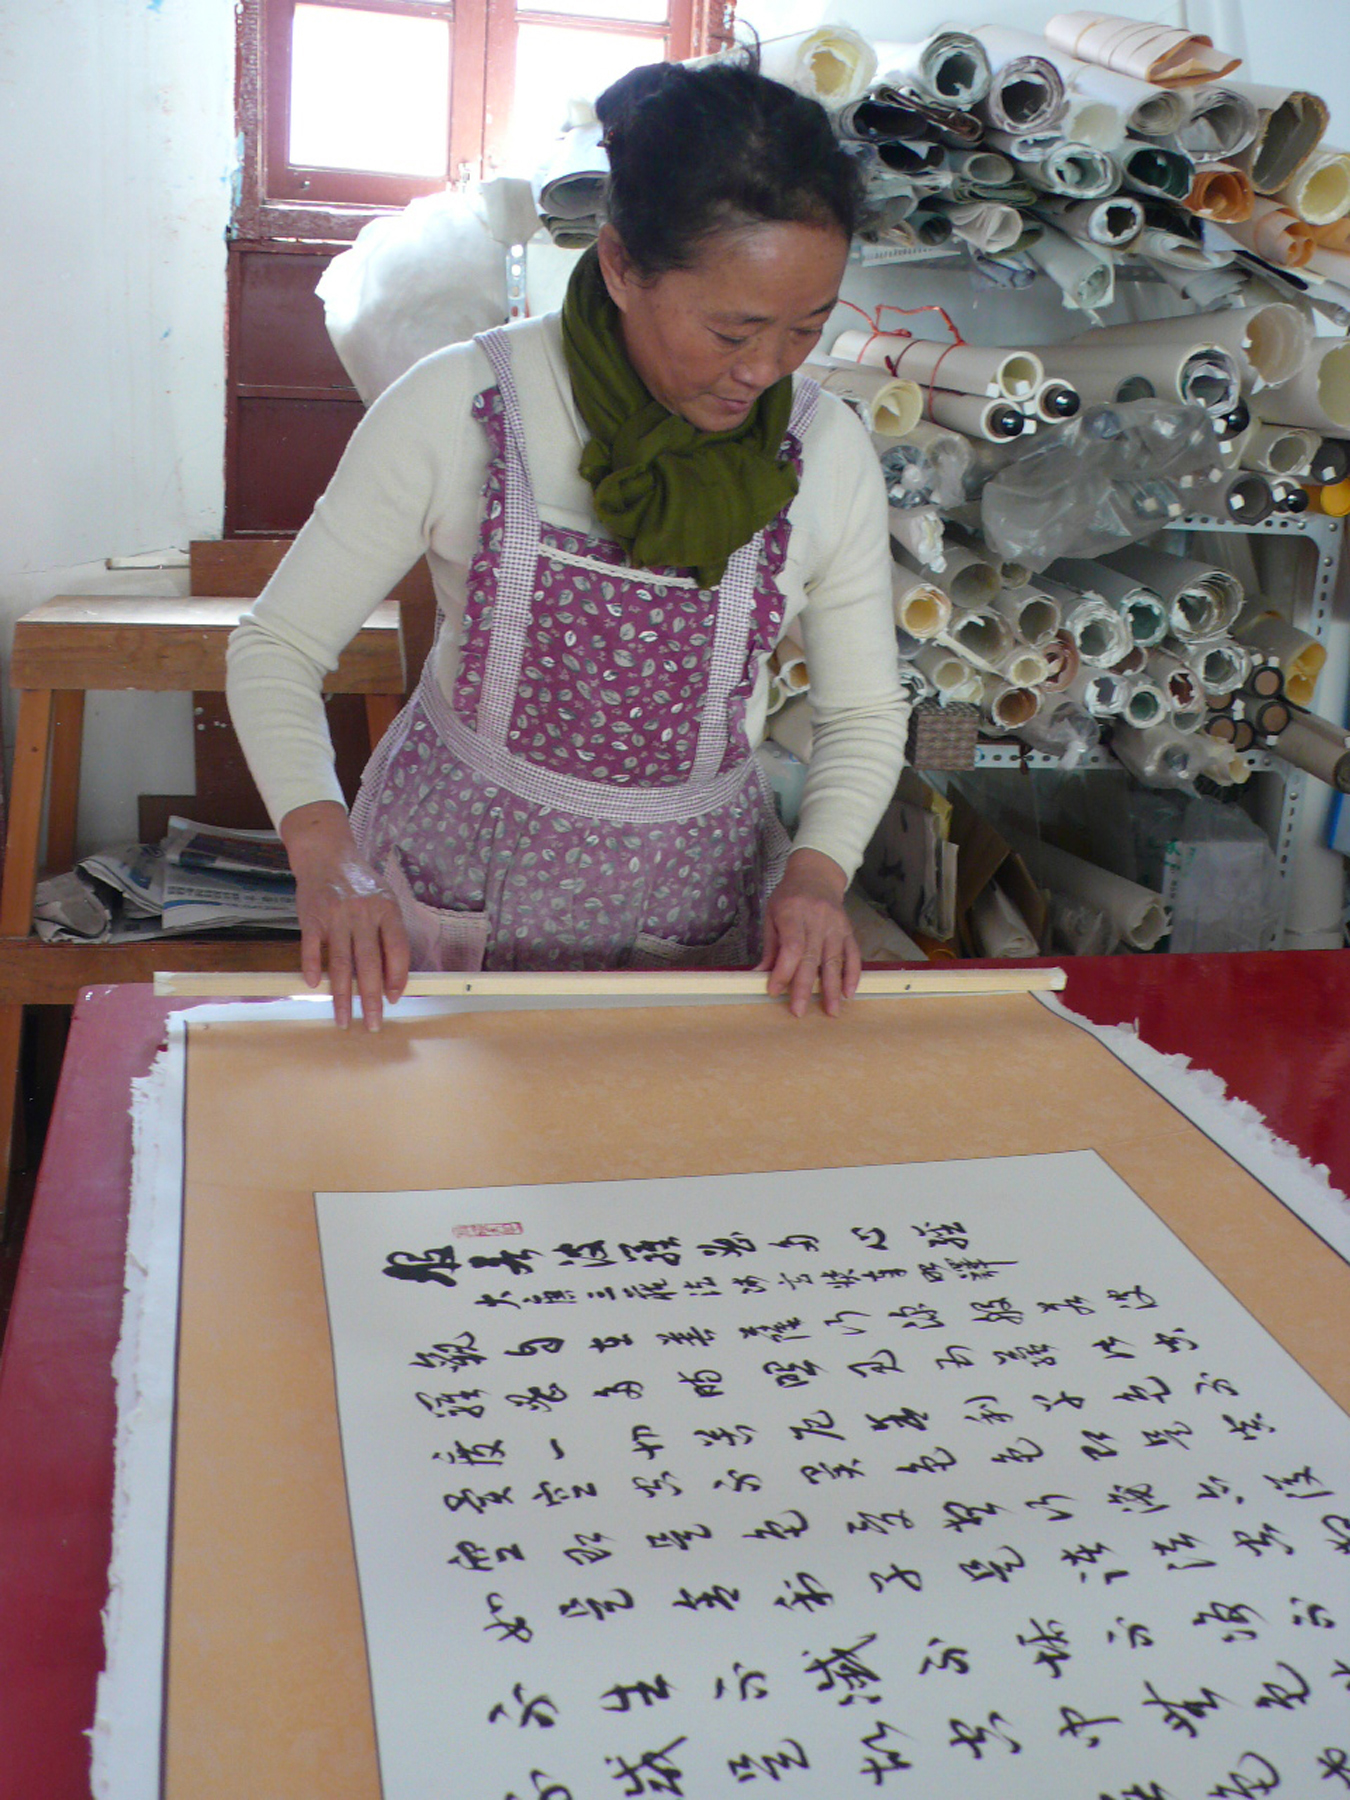 般若波羅蜜多心經
大唐三藏法師玄奘奉詔譯
觀自在菩薩行深般若波
羅蜜多時照見五蘊皆空
度一切苦厄舍利子色不
異空空不異色色即是空
空即是色受想行識亦復
如是舍利子是諸法空相
不生不滅不垢不淨不
不減是故空中無色